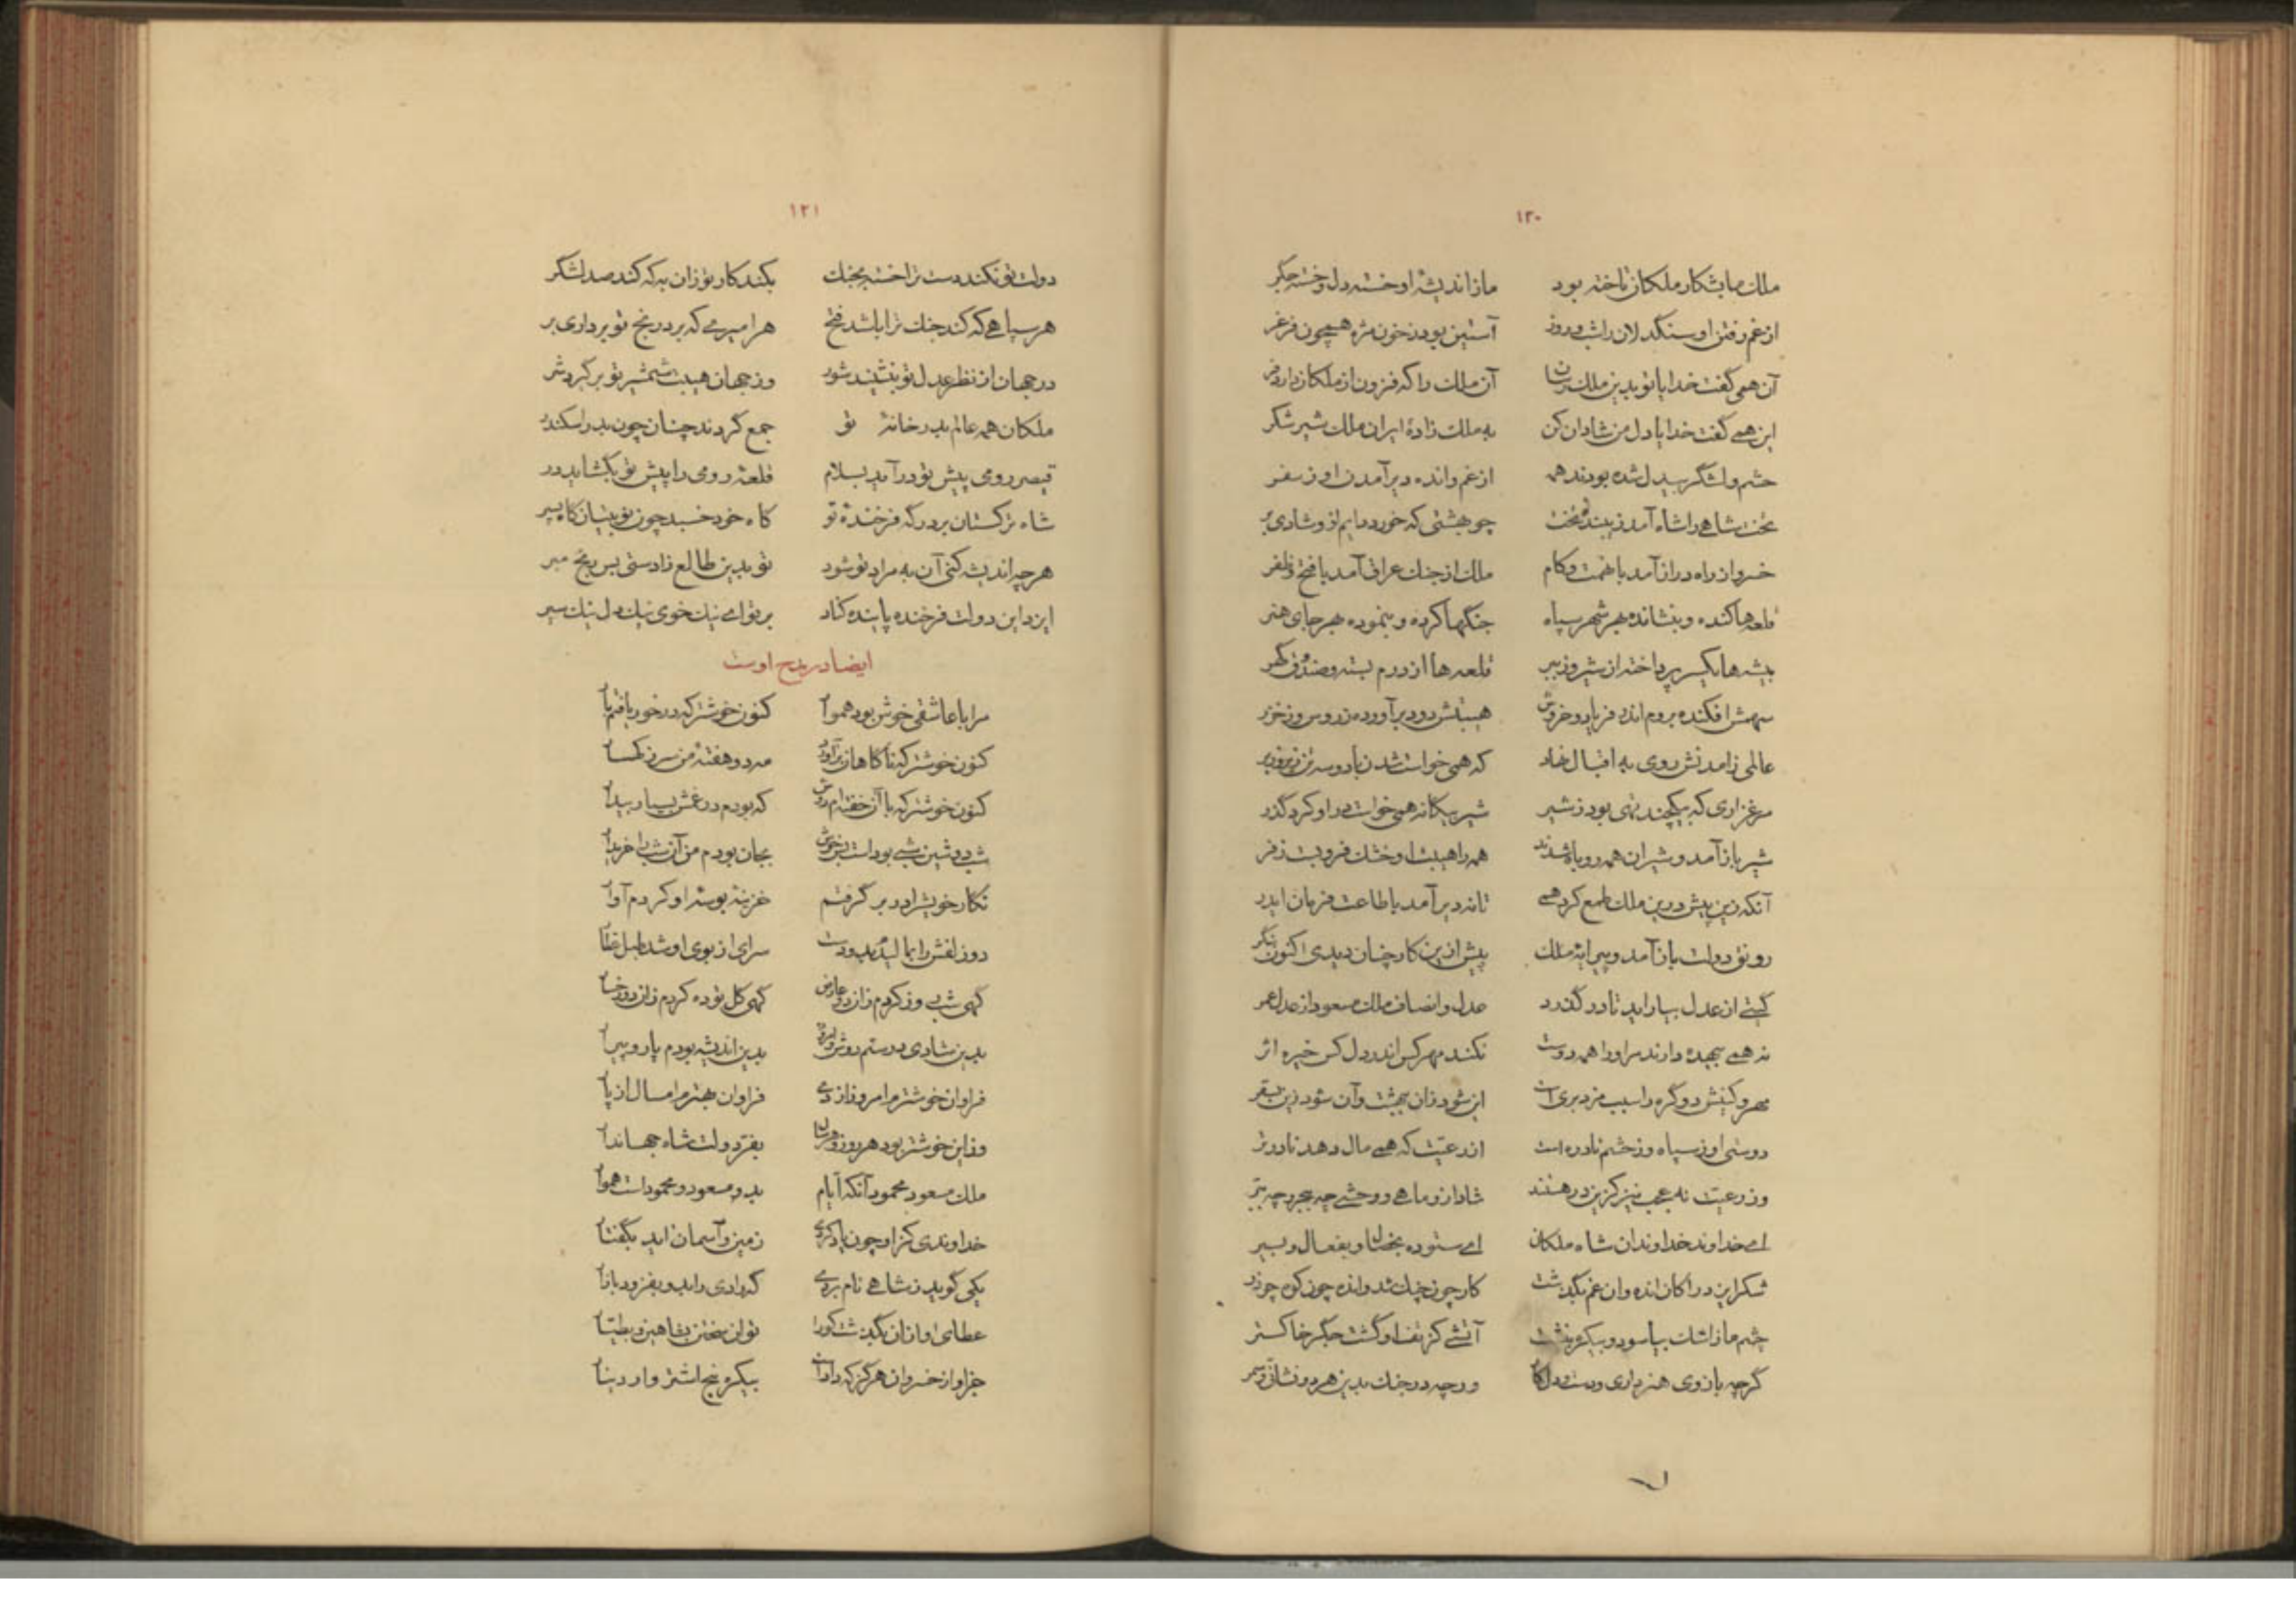 ۱۲۰
ملک ما بشکار ملکان تاخته بود ما ز اندیشهٔ او خسته دل و خسته جگر
از غم رفتن او سنگدلان را شب و روز آستین بود ز خون مژه همچون فرغر
آن همی گفت خدایا تو بدین ملک رسان آن ملک را که فزون از ملکان دارد فر
این همی گفت خدایا دل من شادان کن به ملک زادهٔ ایران ملک شیر شکر
حشم و لشگر بیدل شده بودند همه از غم و انده دیر آمدن او ز سفر
تخت شاهی را شاه آمد زیبندهٔ تخت چو بهشتی که خورد دایم ازو شادی بر
خسرو از راه دراز آمد با نهمت و کام ملک از جنک عراق آمد با فتح و ظفر
قلعه‌ها کنده و بنشانده بهر شهر سپاه جنگها کرده و بنموده بهر جای هنر
بیشه‌ها یکسر پرداخته از شیر و ببر قلعه‌ها از درم بسته و صندوق گهر
سهمش افکنده بروم اندر فریاد و خروش هیبتش دود برآورده ز روس و ز خزر
عالمی ز آمدنش روی به اقبال نهاد که همی خواست شدن با دو سه تن زیر و زبر
مرغزاری که بیکچند تهی بود ز شیر شیر بیگانه همی خواست درو کرد گذر
شیر باز آمد و شیران همه روباه شدند همه را هیبت او خشک فرو بست زفر
آنکه زین پیش درین ملک طمع کرد همی تا نه دیر آمد با طاعت فرمان ایدر
رونق دولت باز آمد و پیرایهٔ ملک پیش ازین کار چنان دیدی اکنون بنگر
گیتی از عدل بیاراید تا در گذرد عدل و انصاف ملک مسعود از عدل عمر
نه همی بیهده دارند مر او را همه دوست نکند مهر کس اندر دل کس خیره اثر
مهر و کینش دو گره را سبب مزد بری است این شود زان بهشت و آن شود زین بسقر
دوستی او ز سپاه و ز حشم نادره است از رعیت که همی مال دهد نادرتر
وز رعیت نه عجب نیز کزین در هستند شاد ازو ماهی و وحشی چه ببحر و چه ببر
ای خداوند خداوندان شاه ملکان ای ستوده بخصال و بفعال و بسیر
شکر ایزد را کان انده و ان غم بگذشت کار چون چنک شد و انده چون کوه چو ذر
چشم ما ز اشک بیاسود و بیکره بنشست آتشی کز تف او گشت جگر خاکستر
گرچه بازوی هنر داری و دست و دل کار ورچه در جنک بدین هر دو نشانی و سمر
۱۲۱
دولت تو نکند دست ترا خسته بجنک بکند کار تو زان به که کند صد لشگر
هر سپاهی که کند جنک ترا باشد فتح هر امیری که برد رنج تو برداری بر
در جهان از نظر عدل تو بنشیند شور وز جهان هیبت شمشیر تو برگیرد شر
ملکان همه عالم بدر خانهٔ تو جمع گردند چنان چون بدر اسکندر
قیصر رومی پیش تو درآید بسلام قلعهٔ رومی را پیش تو بگشاید در
شاه ترکستان بر درگه فرخندهٔ تو گاه خود خسبد چون تو بنیان گاه پسر
هرچه اندیشه کنی آن به مراد تو شود تو بدین طالع زادستی بس رنج مبر
ایزد این دولت فرخنده پاینده کناد بر تو ای نیک خوی نیک دل نیک سیر
ایضا در مدح اوست
مرا با عاشقی خوش بود هموار کنون خوشتر که در خور یافتم یار
کنون خوشتر که ناگاهان برآورد مه دو هفتهٔ من سر ز کهسار
کنون خوشتر که با او خفته‌ام دوش که بودم در غمش بسیار بیدار
شب دوشین شبی بودست بس خوش بجان بودم من آن شب را خریدار
نگار خویش را در بر گرفتم خزینه بوسهٔ او کردم آوار
دو زلفش را بمالیدم بدو دست سرای از بوی او شد طبل عطار
گهی شب‌وی وز کردم زان دو عارض گهی گل توده کردم زان دو رخسار
بدین شادی درستم دوش و امروز بدین اندیشه بودم پار و پیرار
فراوان خوشترم امروز از دی فراوان بهترم امسال از پار
وز این خوشتر بود هر روز و هر سال بفر دولت شاه جهاندار
ملک مسعود محمود آنکه ایام بدو مسعود و محمود است هموار
خداوندی کز او چون یاد کردی زمین و آسمان اید بگفتار
یکی گوید ز شاهی نام بردی که رادی را بدو بفزود بازار
عطای او از ان بگذشت کورا توان سختن بشاهین و بطیار
جز او از خسروان هرگز که دادست بیکره پنج اشتروار دینار